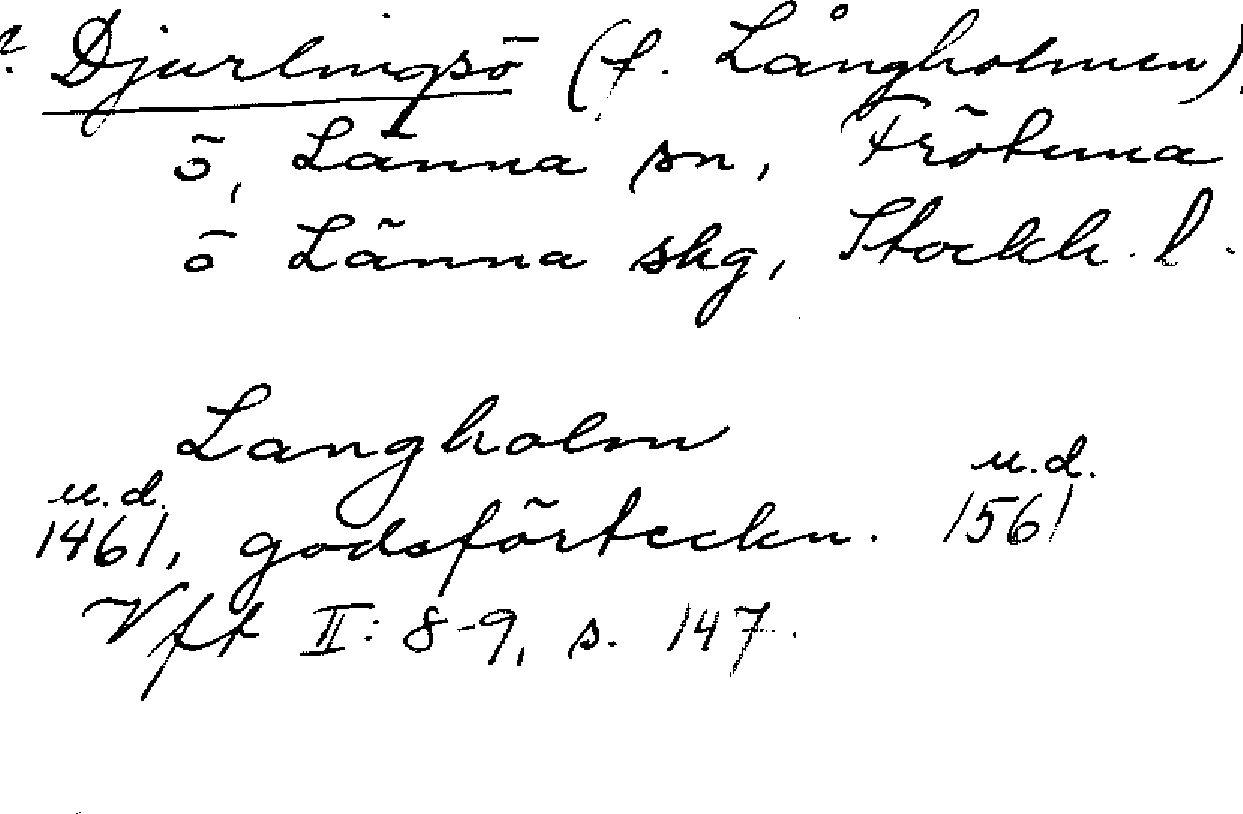 ? Djurlingsö (f. Långholmen)
ö, Länna sn, Frötuna
o Länna skg, Stockh. l.
Langholm
u.d. u.d.
1461, godsförteckn. 1561
Vft II: 8-9, s. 147.